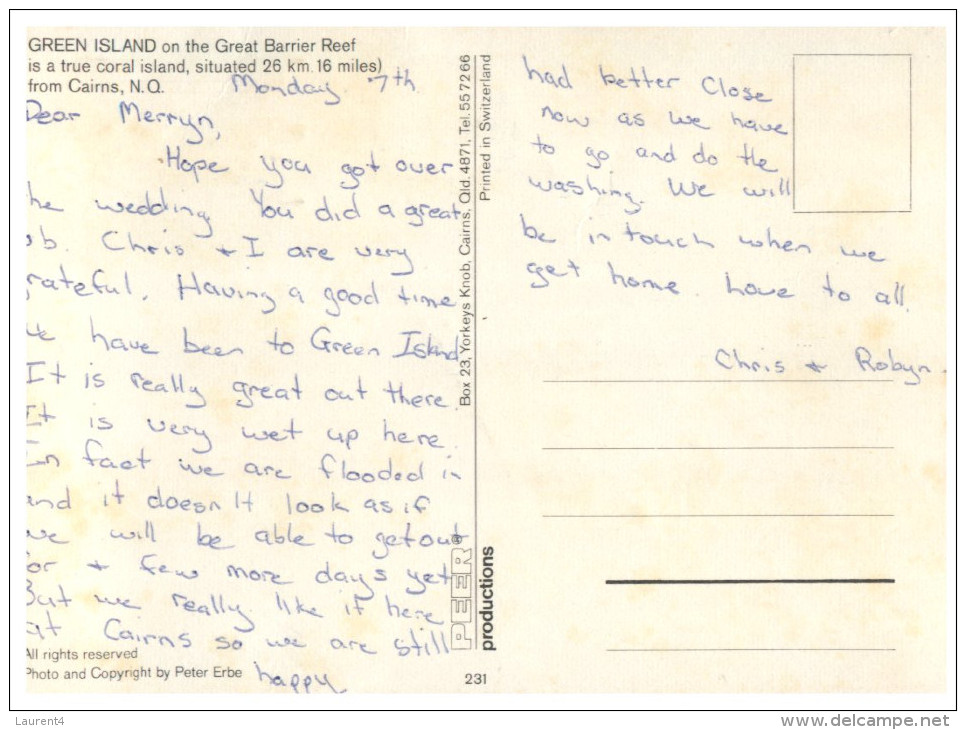 GREEN ISLAND on the Great Barrier Reef
is a true coral island, situated 26 km 16 miles)
from Cairns, N.Q.
Monday 7th
Dear Merryn,
Hope you got over
he wedding You did a great
ob. Chris + I are very
rateful. Having a good time
We have been to Green Island
It is really great out there.
It is very wet up here.
In fact we are flooded in
and it doesn't look as if
we will be able to get out
for + few more days yet
But we really like it here
at Cairns so we are still
happy
All rights reserved
Photo and Copyright by Peter Erbe
Box 23, Yorkeys Knob, Cairns, Qld. 4871, Tel. 557266
Printed in Switzerland
PEER®
productions
231
had better Close
now as we have
to go and do the
washing. We will
be in touch when we
get home. Love to all.
Chris + Robyn.
Laurent4
www.delcampe.net